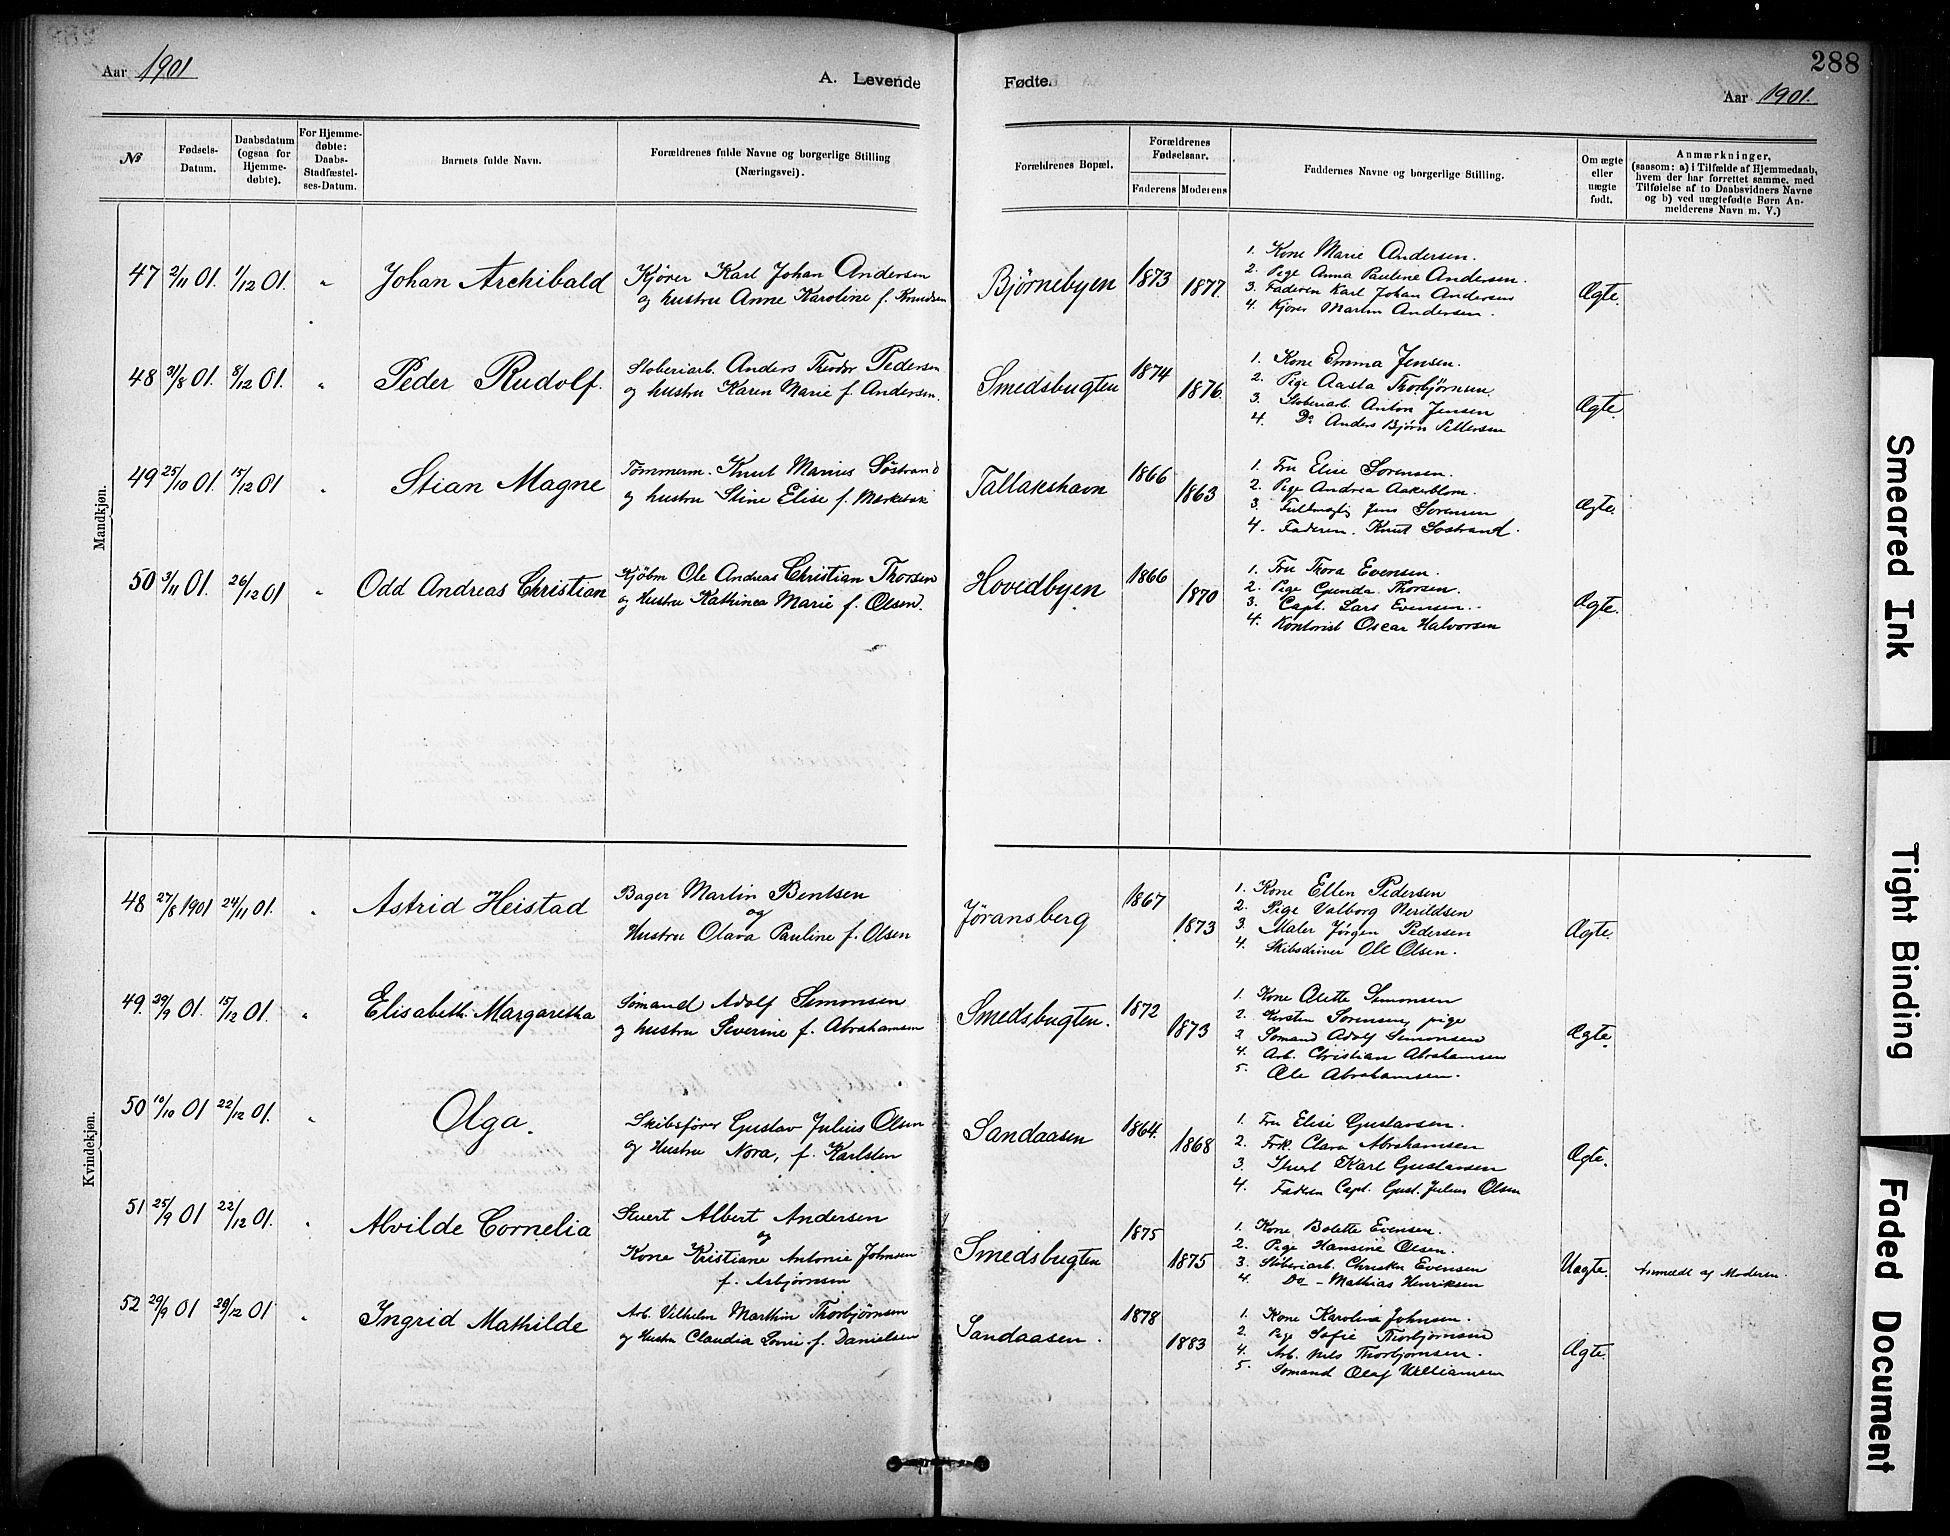 288
Aar 1901
A. Levende Fødte.
Aar 1901.
№
Fødsels-
Datum.
Daabsdatum
(ogsaa for
Hjemme-
døbte).
For Hjemme-
døbte:
Daabs-
Stadfæstel-
ses-Datum.
Barnets fulde Navn.
Forældrenes fulde Navne og borgerlige Stilling
(Næringsvei).
Forældrenes Bopæl.
Forældrenes
Fødselsaar.
Faderens Moderens
Faddernes Navne og borgerlige Stilling.
Om ægte
eller
uægte
født.
Anmærkninger,
(saasom: a) i Tilfælde af Hjemmedaab,
hvem der har forrettet samme, med
Tilføielse af to Daabsvidners Navne
og b) ved uægtefødte Børn An-
melderens Navn m. V.)
Mandkjøn.
47 2/11 01. 1/12 01. " Johan Archibald
Kjører Karl Johan Andersen
og hustru Anne Karoline f. Knudsen
Bjørnebyen 1873 1877.
1. Kone Marie Andersen.
2. Pige Anna Pauline Andersen.
3. Faderen Karl Johan Andersen
4. Kjører Martin Andersen.
Ægte.
48 31/8 01. 8/12 01. " Peder Rudolf.
Støberiarb. Anders Theodor Pedersen
og hustru Karen Marie f. Andersen.
Smedsbugten 1874 1876.
1. Kone Emma Jensen.
2. Pige Aasta Thorbjørnsen.
3. Støberiarb. Anton Jensen
4. Do Anders Bjørn Pettersen
Ægte.
49 25/10 01. 15/12 01 " Stian Magne
Tømmerm. Knut Marius Søstrand
og hustru Stine Elise f.
Tallakshavn 1866 1863
1. Fru Elise Sørensen.
2. Pige Andrea Aakerblom.
3. Fuldmægtig Jens Sørensen
4. Faderen. Knut Sostrand.
Ægte.
50 3/11 01. 26/12 01 " Odd Andreas Christian
Kjøbm Ole Andreas Christian Thorsen
og Hustru Kathinca Marie f. Olsen.
Hovedbyen 1866 1870
1. Fru Thora Evensen.
2. Pige Gunda Thorsen.
3. Capt. Lars Evensen.
4. Kontorist Oscar Halvorsen
Ægte.
Kvindekjøn.
48 27/8 1901 24/11 01. " Astrid Heistad
Bager Martin Bentsen
og
Hustru Olava Pauline f. Olsen
Jøransberg 1867 1873
1. Kone Ellen Pedersen
2. Pige Valborg Nerildsen
3. Maler Jørgen Pedersen
4. Skibsdriver Ole Olsen.
Ægte.
49. 29/9 01. 15/12 01. " Elisabeth Margaretha
Sømand Adolf Simonsen
og hustru Severine f. Abrahamsen
Smedsbugten. 1872 1873
1. Kone Alette Simonsen
2. Kirsten Sørensen, pige
2 Sømand Adolf Simonsen
4. Arb. Christian Abrahamsen
5. Ole Abrahamsen.
Ægte.
50 10/10 01 22/12 01. " Olga.
Skibsfører Gustav Julius Olsen
og Hustru Nora, f. Karlsten
Sandaasen 1864. 1868
1. Fru Elise Gustavsen.
2. Frk. Clara Abrahamsen
3. Stuert Karl Gustavsen
4. Faderen Capt. Gust. Julius Olsen
Ægte.
51 25/9 01 22/12 01. " Alvilde Cornelia
Stuert Albert Andersen
og
Kone Kristiane Antonie Johnsen
f. Asbjørnsen
Smedsbugten 1875 1875
1. Kone Bolette Evensen.
2. Pige Hansine Olsen.
3. Støberiarb. Evensen
4. Do - Mathias Henriksen
Uægte. Anmeldt af Moderen.
52 29/9 01 29/12 01 " Ingrid Mathilde
Arb. Vilhelm Marthin Thorbjørnsen
og Hustru Claudia f. Danielsen
Sandaasen. 1878 1883
1. Kone Karoline Johnsen.
2. Pige Sofie Thorbjørnsen
4. Arb. Nils Thorbjørnsen.
5. Sømand Olaf Williamsen
Ægte.
Smeared Ink
Tight Binding
Faded Document